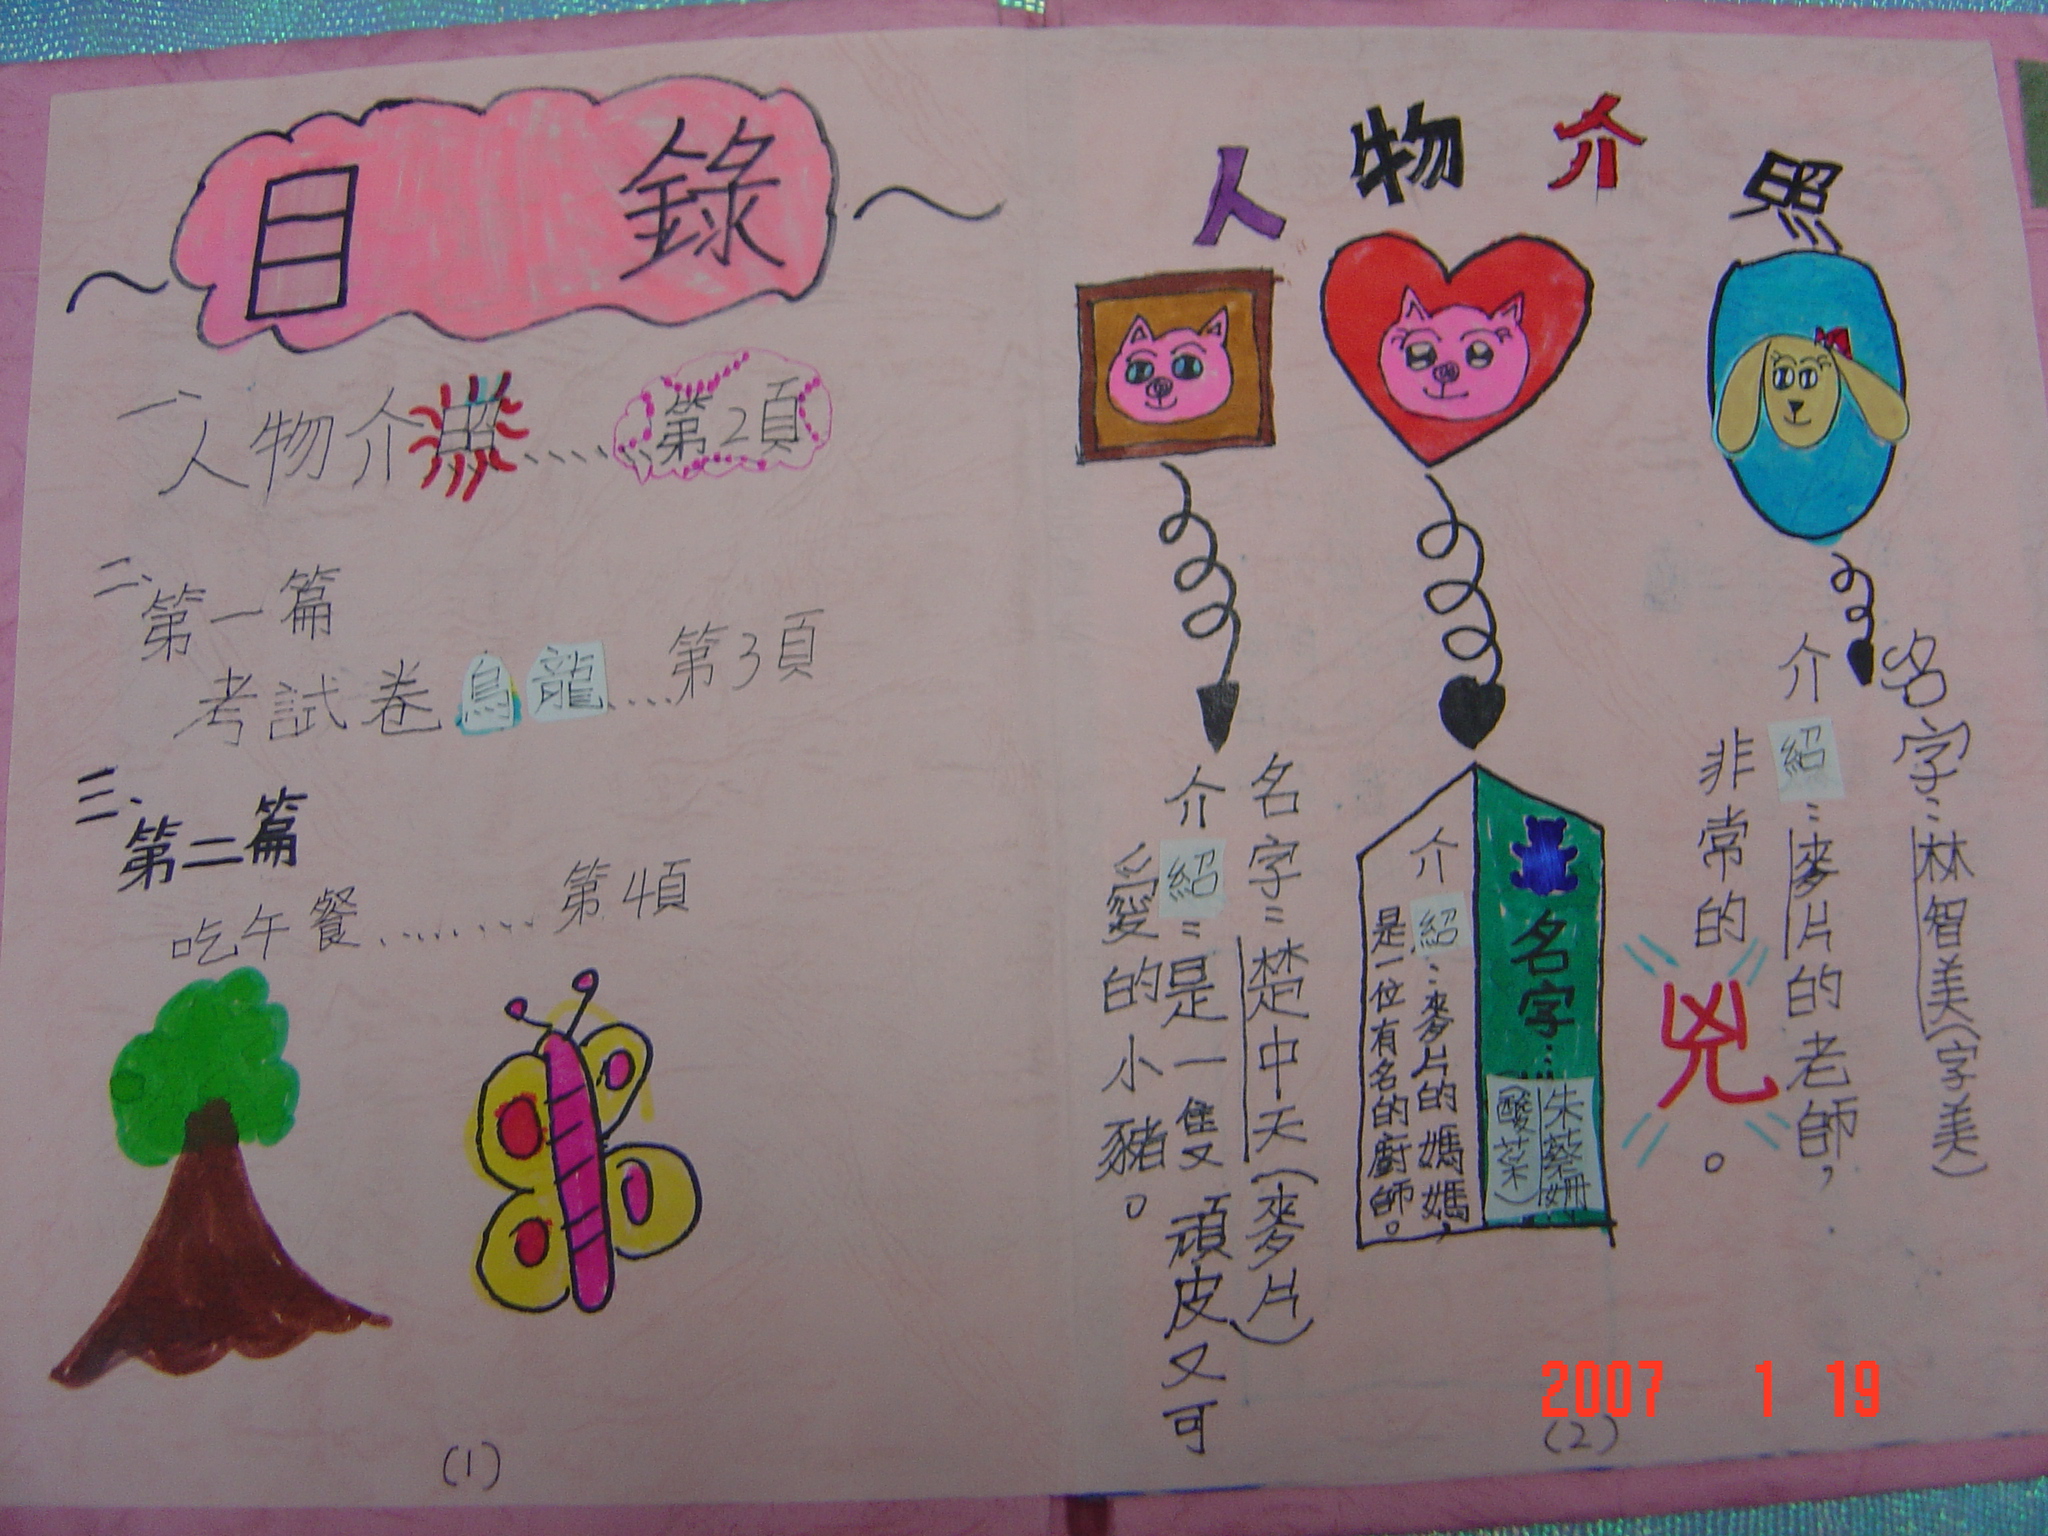 目錄
一、人物介照......第2頁
二、第一篇
考試卷烏龍....第3頁
三、第二篇
吃午餐.........第4頁
(1)
人物介照
名字：楚中天(麥片)
介紹：是一隻頑皮又可
愛的小豬。
名字：朱蔡姍
(酸菜)
介紹：麥片的媽媽，
是一位有名的廚師。
名字：林智美(字美)
介紹：麥片的老師，
非常的兇。
(2)
2007 1 19